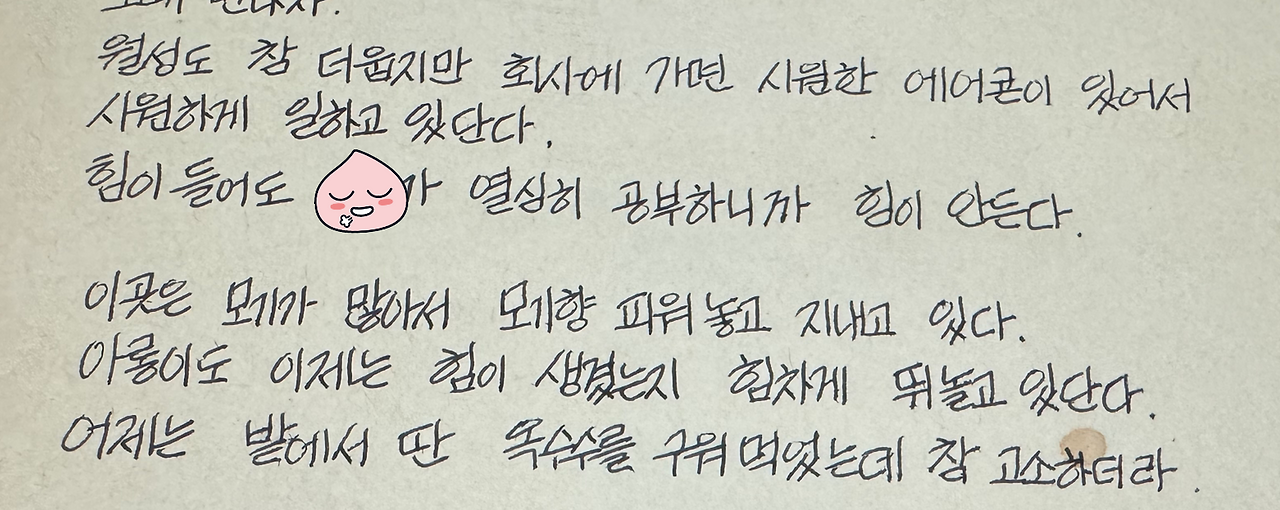 월성도 참 더웁지만 회사에 가면 시원한 에어콘이 있어서
시원하게 일하고 있단다.
힘이 들어도 가 열심히 공부하니까 힘이 안든다.
이곳은 모기가 많아서 모기향 피워놓고 지내고 있다.
아롱이도 이제는 힘이 생겼는지 힘차게 뛰놀고 있단다.
어제는 밭에서 딴 옥수수를 구워먹었는데 참 고소하더라.